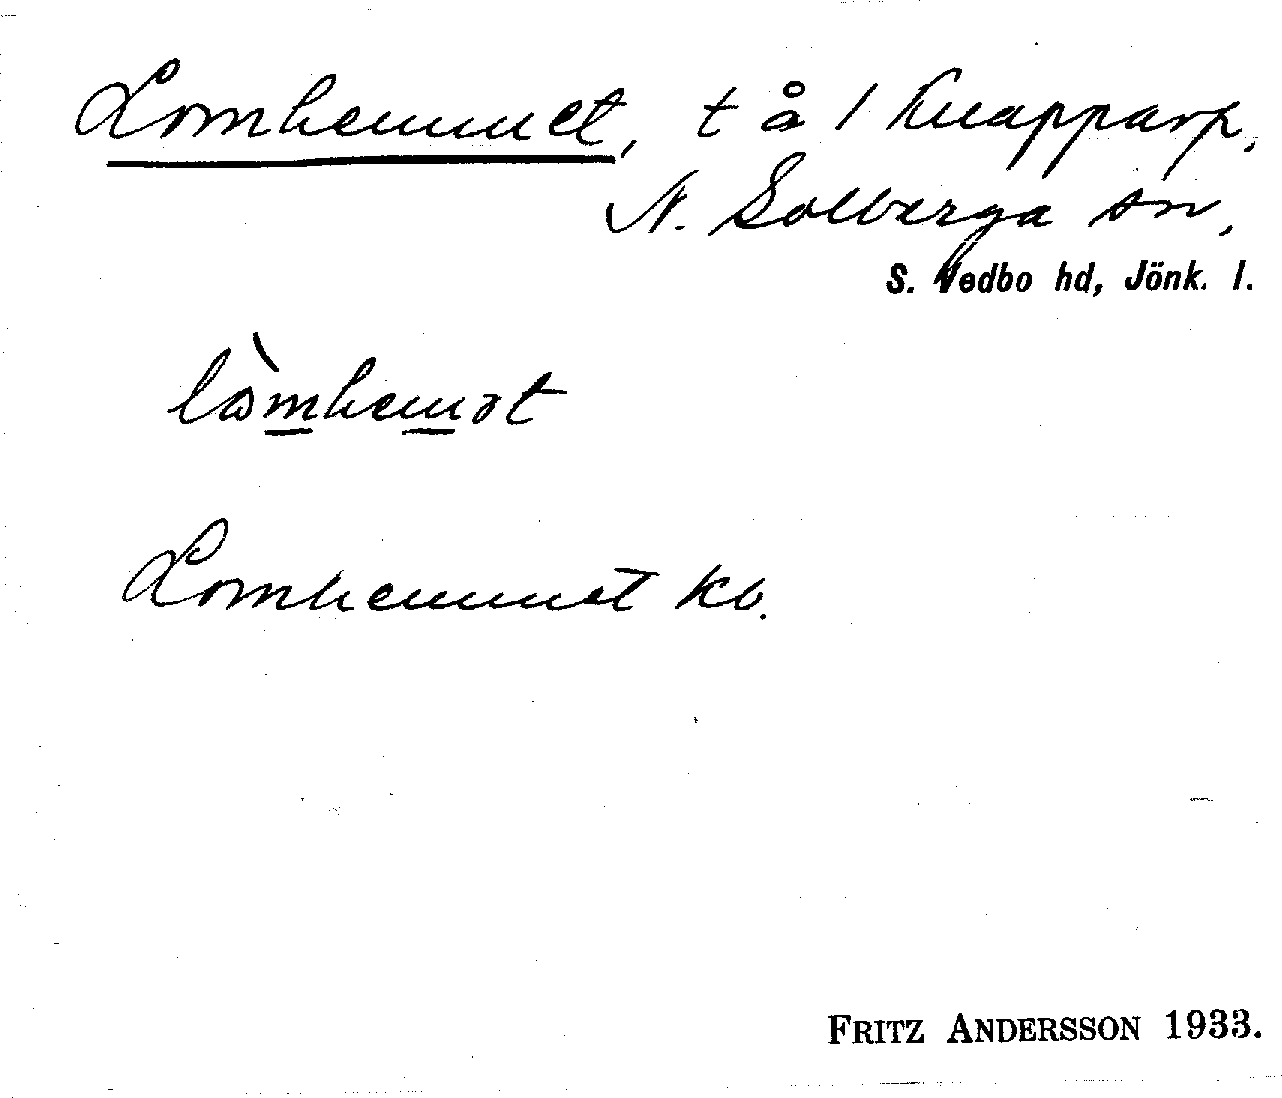 Lomhemmet, t å 1 Knapparp,
N. Solberga sn,
S. Vedbo hd, Jönk. l.
lòmhemət
Lomhemmet kb.
FRITZ ANDERSSON 1933.